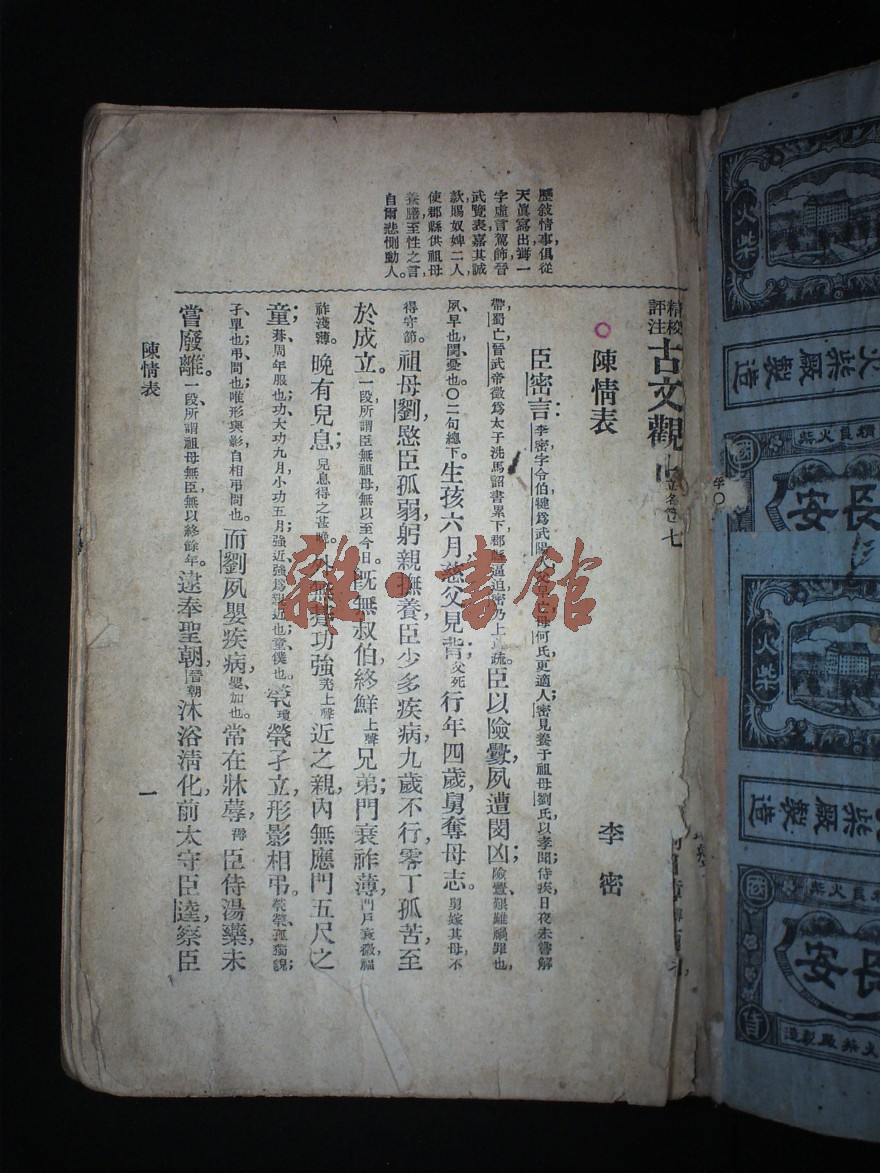 歷敘情事,俱從
天眞寫出,無一
字虛言駕飾,晉
武覽表,嘉其誠
款,賜奴婢二人,
使郡縣供祖母
養膳,至性之言,
自爾悲惻動人。
精校
評注
古文觀 七
陳情表
李密
臣密言:李密字令伯,犍爲武陽人,父早亡,母何氏更適人,密見養于祖母劉氏,以孝聞,侍疾日夜未嘗解
帶,蜀亡,晉武帝徵爲太子洗馬,詔書累下,郡縣逼迫,密乃上 疏。臣以險釁,夙遭閔凶;險釁,艱難禍罪也,
夙,早也,閔,憂也。〇二句總下。生孩六月,慈父見背;父死行年四歲,舅奪母志。舅嫁其母,不
得守節。祖母劉,愍臣孤弱,躬親撫養,臣少多疾病,九歲不行,零丁孤苦,至
於成立。一段所謂臣無祖母無以至今日。旣無叔伯,終鮮上聲兄弟;門衰祚薄,門戶衰微,福
祚淺薄。晚有兒息;兒息得之甚晚。外無朞功強羌上聲近之親,內無應門五尺之
童;朞,周年服也,功,大功九月,小功五月,強近,強爲親近也,童,僕也。煢瓊煢孑立,形影相弔。煢煢,孤獨貌;
孑,單也,弔,問也,唯形與影自相弔問也。而劉夙嬰疾病,嬰,加也。常在牀蓐,褥臣侍湯藥,未
嘗廢離。一段所謂祖母無臣無以終餘年。逮奉聖朝,晉朝沐浴淸化,前太守臣逵,察臣
陳情表
一
雜·書館
火柴
火柴廠製造
國
長安
火柴
火柴廠製造
國
長安
貨